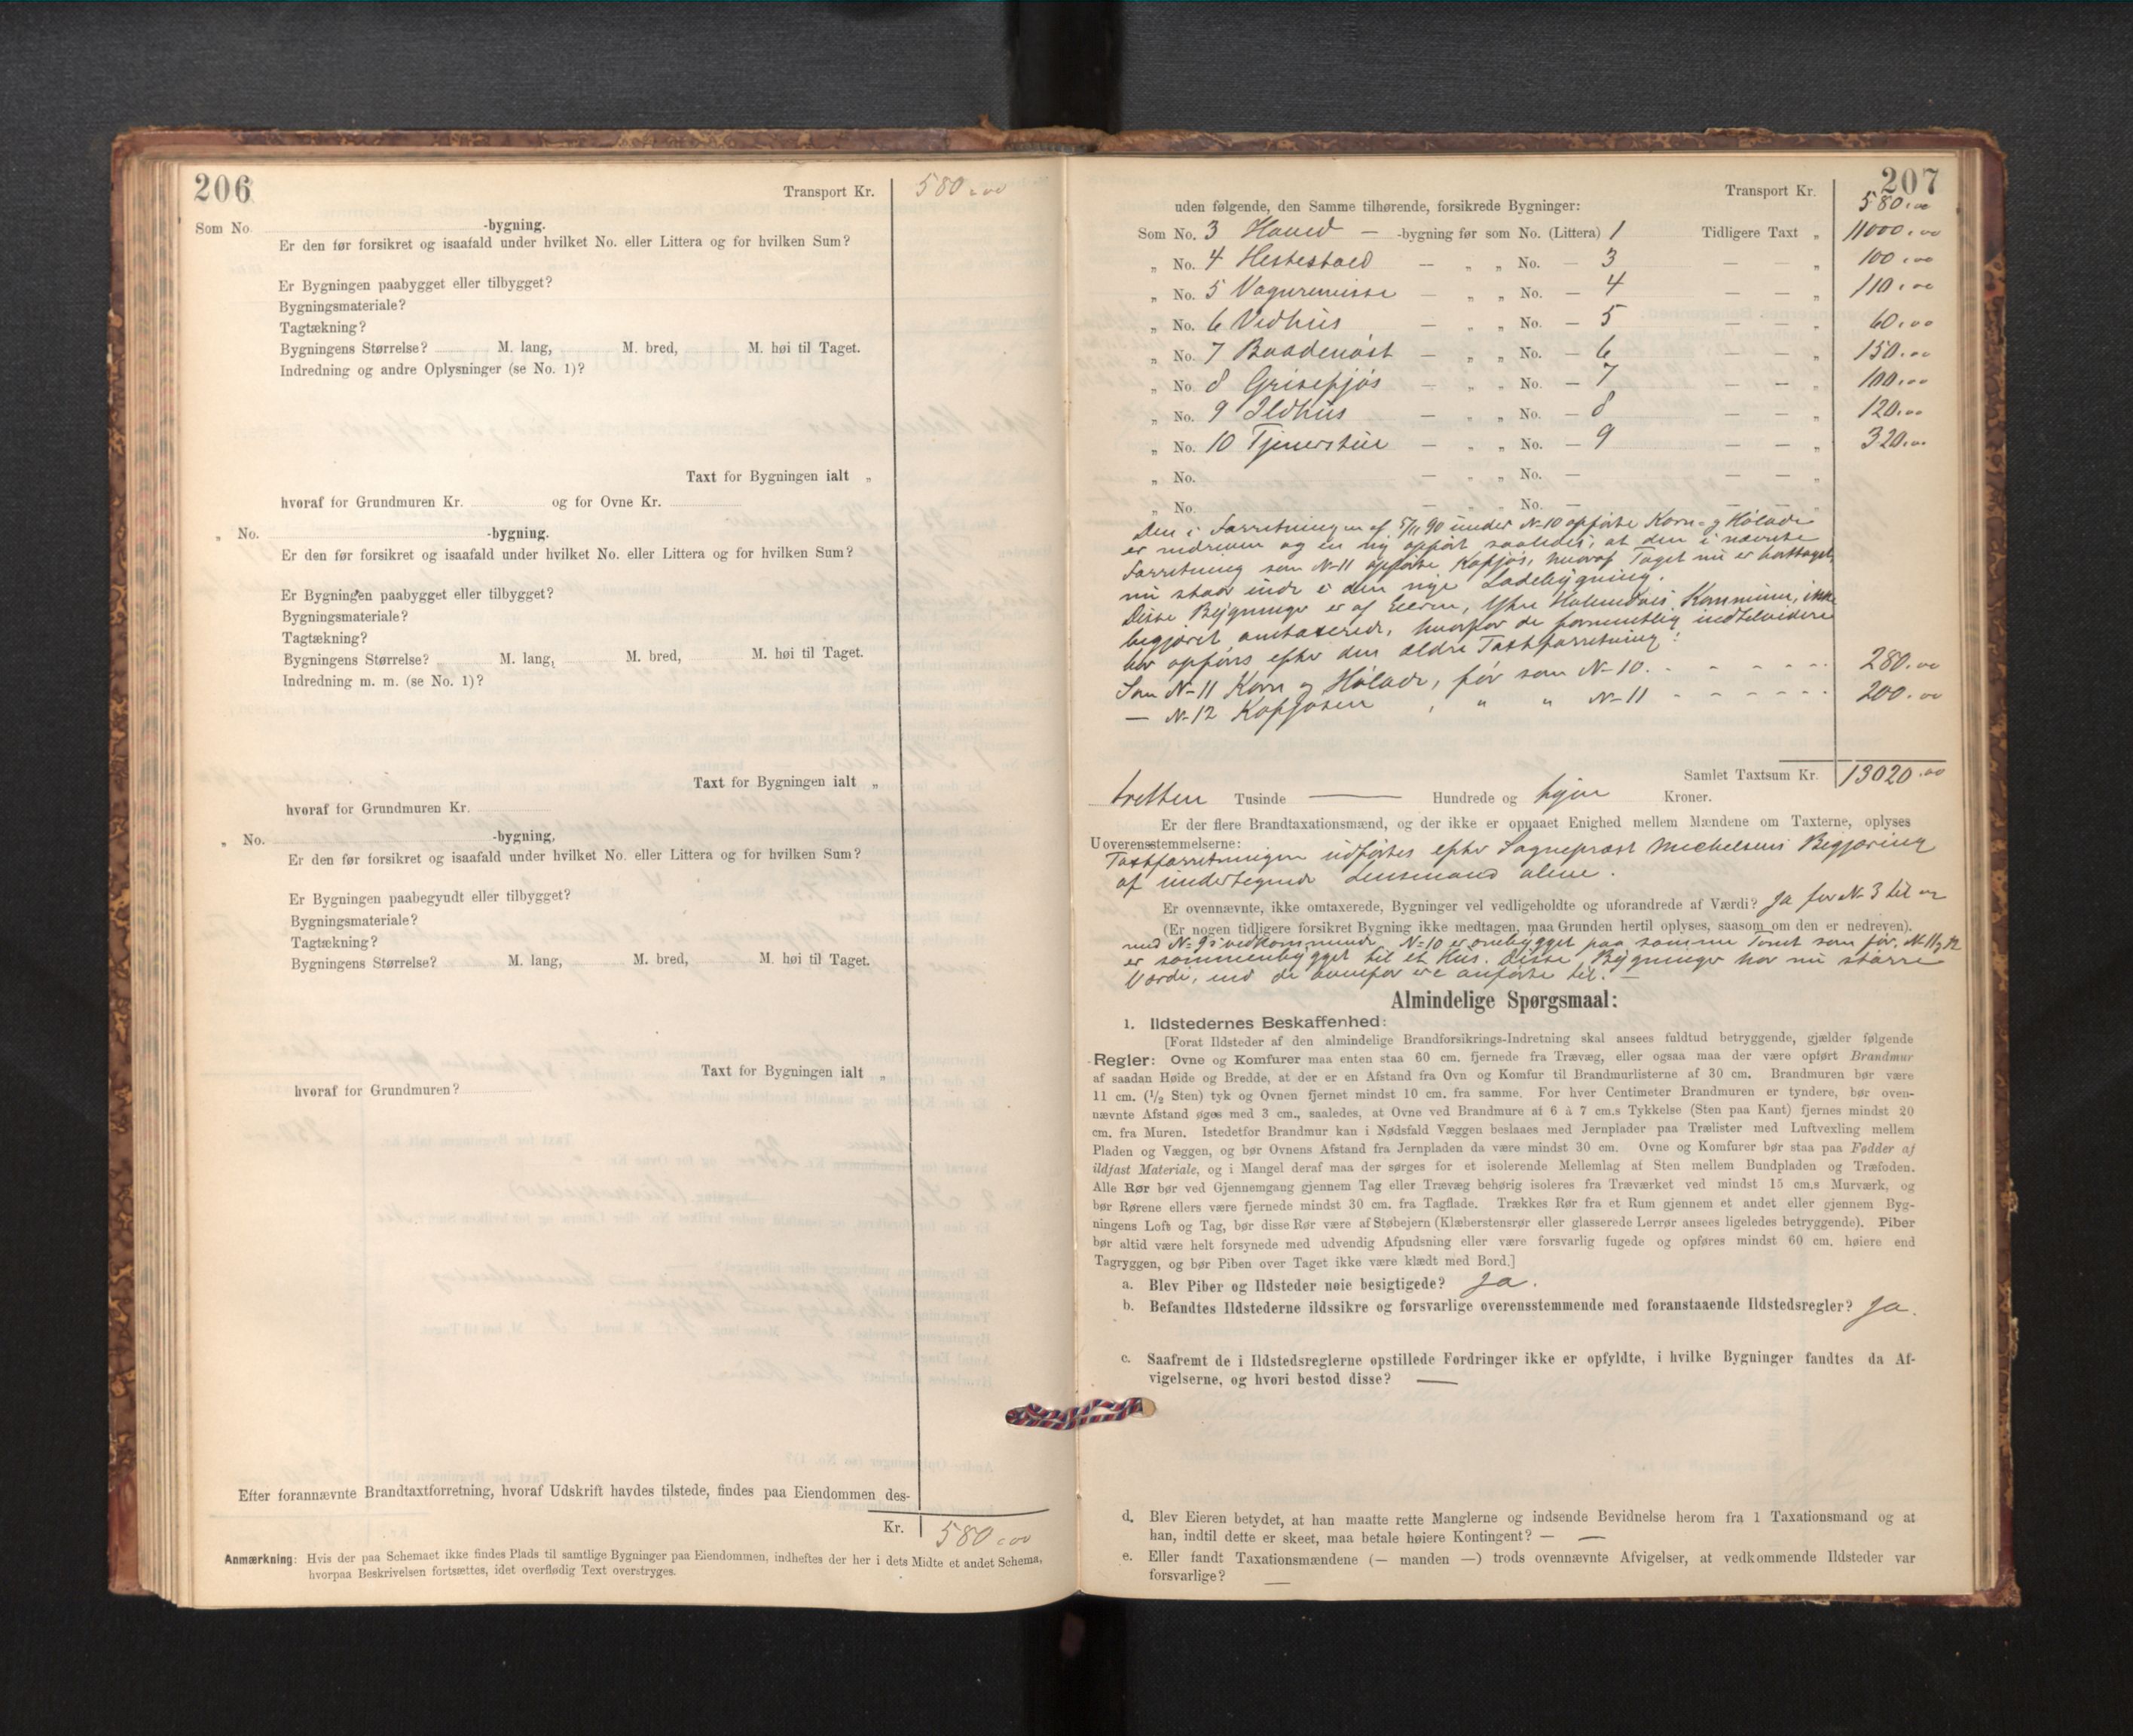 206
Transport Kr. 580.00
Som No. -bygning.
Er den før forsikret og isaafald under hvilket No. eller Littera og for hvilken Sum?
Er Bygningen paabygget eller tilbygget?
Bygningsmateriale?
Tagtækning?
Bygningens Størrelse? M. lang, M. bred, M. høi til Taget.
Indredning og andre Oplysninger (se No. 1)?
Taxt for Bygningen ialt „
hvoraf for Grundmuren Kr. og for Ovne Kr.
„ No. -bygning.
Er den før forsikret og isaafald under hvilket No. eller Littera og for hvilken Sum?
Er Bygningen paabygget eller tilbygget?
Bygningsmateriale?
Tagtækning?
Bygningens Størrelse? M. lang, M. bred, M. høi til Taget.
Indredning m. m. (se No. 1)?
Taxt for Bygningen ialt „
hvoraf for Grundmuren Kr.
„ No. -bygning.
Er den før forsikret og isaafald under hvilket No. eller Littera og for hvilken Sum?
Er Bygningen paabegyndt eller tilbygget?
Bygningsmateriale?
Tagtækning?
Bygningens Størrelse? M. lang, M. bred, M. høi til Taget.
Taxt for Bygningen ialt „
hvoraf for Grundmuren?
Efter forannævnte Brandtaxtforretning, hvoraf Udskrift havdes tilstede, findes paa Eiendommen des-
Kr. 580.00
Anmærkning: Hvis der paa Schemaet ikke findes Plads til samtlige Bygninger paa Eiendommen, indheftes der her i dets Midte et andet Schema,
hvorpaa Beskrivelsen fortsættes, idet overflødig Text overstryges.
207
Transport Kr. 580.00
uden følgende, den Samme tilhørende, forsikrede Bygninger:
Som No. 3 Hoved – -bygning før som No. (Littera) 1 Tidligere Taxt „ 11000.00
„ No. 4 Hestestald — „ „ No. — 3 — — „ 100.00
„ No. 5 Vognremisse — „ „ No. — 4 — — „ 110.00
„ No. 6 Vedhus — „ „ No. — 5 — — „ 60.00
„ No. 7 Baadenøst — „ „ No. — 6 — — „ 150.00
„ No. 8 Grisefjøs — „ „ No. — 7 — — „ 100.00
„ No. 9 Ildhus — „ „ No. — 8 — — „ 120.00
„ No. 10 Tjenerstue — „ „ No. — 9 — — „ 320.00
„ No. — „ „ No. — — — „
„ No. — „ „ No. — — — „
Den i Forretningen af 5/11 90 under No 10 opførte Korn- og Hølade
er nedreven og en ny opført saaledes, at den i nævnte
Forretning som No 11 opførte Kofjøs, hvoraf Taget nu er borttaget,
nu staar inde i den nye Ladebygning.
Disse Bygninger er af Eieren, Ytre Holmedals Kommune, ikke
begjæret omtaxerede, hvorfor de formentlig indtilvidere
bør opføres efter den ældre Taxtforretning:
Som No 11 Korn og Hølade, før som No 10. - - - - - 280.00
— No 12 Kofjøsen , „ „ No 11 - - - - - 200.00
Samlet Taxtsum Kr. 13020.00
tretten Tusinde — Hundrede og tyve Kroner.
Er der flere Brandtaxationsmænd, og der ikke er opnaaet Enighed mellem Mændene om Taxterne, oplyses
Uoverensstemmelserne:
Taxtforretningen udførtes efter Sogneprest Michelsens Begjæring
af undertegnede Lensmand alene.
Er ovennævnte, ikke omtaxerede, Bygninger vel vedligeholdte og uforandrede af Værdi? Ja for No 3 til og
(Er nogen tidligere forsikret Bygning ikke medtagen, maa Grunden hertil oplyses, saasom om den er nedreven).
med No 9's vedkommende. No 10 er ombygget paa samme Tomt som før. No 11 og 12
er sammenbygget til et Hus. Disse Bygninger har nu større
Værdi, end de ovenfor ere anførte til. —
Almindelige Spørgsmaal:
1. Ildstedernes Beskaffenhed:
[Forat Ildsteder af den almindelige Brandforsikrings-Indretning skal ansees fuldtud betryggende, gjælder følgende
Regler: Ovne og Komfurer maa enten staa 60 cm. fjernede fra Trævæg, eller ogsaa maa der være opført Brandmur
af saadan Høide og Bredde, at der er en Afstand fra Ovn og Komfur til Brandmurlisterne af 30 cm. Brandmuren bør være
11 cm. (1/2 Sten) tyk og Ovnen fjernet mindst 10 cm. fra samme. For hver Centimeter Brandmuren er tyndere, bør oven-
nævnte Afstand øges med 3 cm., saaledes, at Ovne ved Brandmure af 6 à 7 cm.s Tykkelse (Sten paa Kant) fjernes mindst 20
cm. fra Muren. Istedetfor Brandmur kan i Nødsfald Væggen beslaaes med Jernplader paa Trælister med Luftvexling mellem
Pladen og Væggen, og bør Ovnens Afstand fra Jernpladen da være mindst 30 cm. Ovne og Komfurer bør staa paa Fødder af
ildfast Materiale, og i Mangel deraf maa der sørges for et isolerende Mellemlag af Sten mellem Bundpladen og Træfoden.
Alle Rør bør ved Gjennemgang gjennem Tag eller Trævæg behørig isoleres fra Træværket ved mindst 15 cm.s Murværk, og
bør Rørene ellers være fjernede mindst 30 cm. fra Tagflade. Trækkes Rør fra et Rum gjennem et andet eller gjennem Byg-
ningens Loft og Tag, bør disse Rør være af Støbejern (Klæberstensrør eller glasserede Lerrør ansees ligeledes betryggende). Piber
bør altid være helt forsynede med udvendig Afpudsning eller være forsvarlig fugede og opføres mindst 60 cm. høiere end
Tagryggen, og bør Piben over Taget ikke være klædt med Bord.]
a. Blev Piber og Ildsteder nøie besigtigede? Ja.
b. Befandtes Ildstederne ildssikre og forsvarlige overensstemmende med foranstaaende Ildstedsregler? Ja.
c. Saafremt de i Ildstedsreglerne opstillede Fordringer ikke er opfyldte, i hvilke Bygninger fandtes da Af-
vigelserne, og hvori bestod disse? —
d. Blev Eieren betydet, at han maatte rette Manglerne og indsende Bevidnelse herom fra 1 Taxationsmand og at
han, indtil dette er skeet, maa betale høiere Kontingent? — —
e. Eller fandt Taxationsmændene (— manden —) trods ovennævnte Afvigelser, at vedkommende Ildsteder var
forsvarlige? —